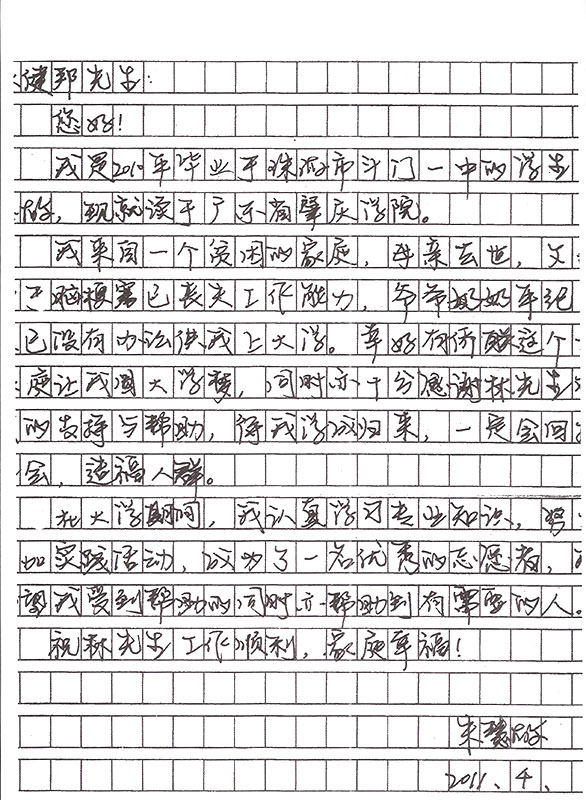 健邦先生:
您好!
我是2010年毕业于珠海市斗门一中的学生
欣,现就读于广东省肇庆学院。
我来自一个贫困的家庭,母亲去世,父
脑梗塞已丧失工作能力,爷爷奶奶年纪
已没有办法供我上大学。幸好有侨联这个
庭让我圆大学梦,同时亦十分感谢林先生
的支持与帮助,待我学成归来,一定会回
会,造福人群。
在大学期间,我认真学习专业知识,努
加实践活动,成为了一名优秀的志愿者,
我受到帮助的同时亦帮助到有需要的人。
祝林先生工作顺利,家庭幸福!
朱慧欣
2011、4、